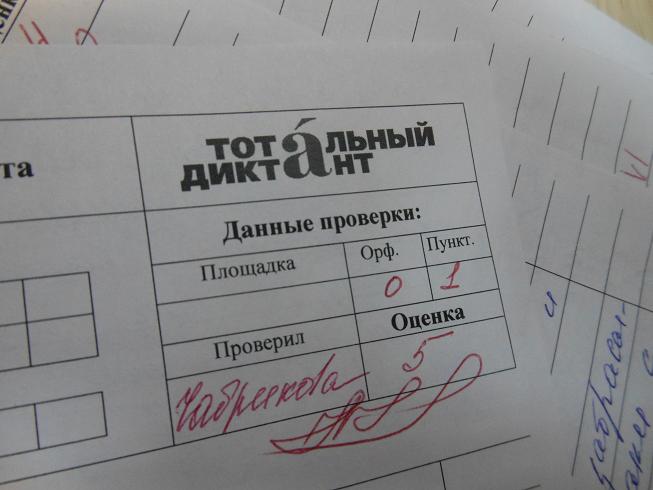 та
тотáльный
диктант
Данные проверки:
Площадка
Орф.
Пункт.
0
1
Проверил
Оценка
Чабрикова
5
и